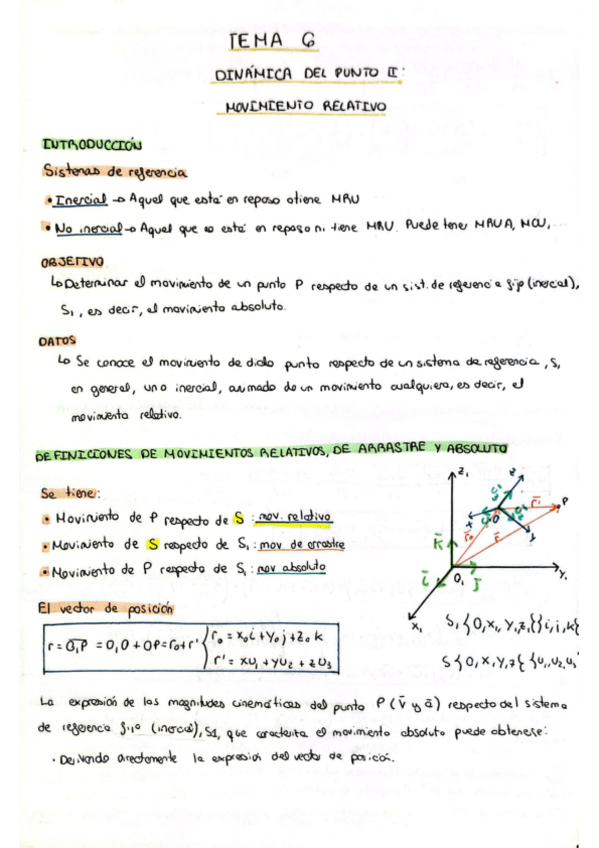 TEMA 6
DINÁMICA DEL PUNTO II:
MOVIMIENTO RELATIVO
INTRODUCCIÓN
Sistemas de referencia
• Inercial → Aquel que está en reposo o tiene MRU
• No inercial → Aquel que no está en reposo ni tiene MRU. Puede tener MRUA, MCU, ...
OBJETIVO
↳ Determinar el movimiento de un punto P respecto de un sist. de referencia fijo (inercial),
S₁, es decir, el movimiento absoluto.
DATOS
↳ Se conoce el movimiento de dicho punto respecto de un sistema de referencia, S,
en general, uno inercial, animado de un movimiento cualquiera, es decir, el
movimiento relativo.
DEFINICIONES DE MOVIMIENTOS RELATIVOS, DE ARRASTRE Y ABSOLUTO
Se tiene:
• Movimiento de P respecto de S : mov. relativo
• Movimiento de S respecto de S₁ : mov de arrastre
• Movimiento de P respecto de S₁ : mov absoluto
z₁ z
r̄' P
x O y
r̄₀ r̄
k̄
ī O₁ j̄ Y₁
x₁
S₁ {O, x₁, Y₁, z₁{}i, j, k{
S {O, x, Y, z{ {u₁, u₂, u₃
El vector de posición
r = O₁P = O₁O + OP = r₀ + r' { r₀ = x₀i + y₀j + z₀k
r' = xu₁ + yu₂ + zu₃
La expresión de las magnitudes cinemáticas del punto P (v̄ y ā) respecto del sistema
de referencia fijo (inercial), S1, que caracteriza el movimiento absoluto puede obtenerse:
· Derivando directamente la expresión del vector de posición.